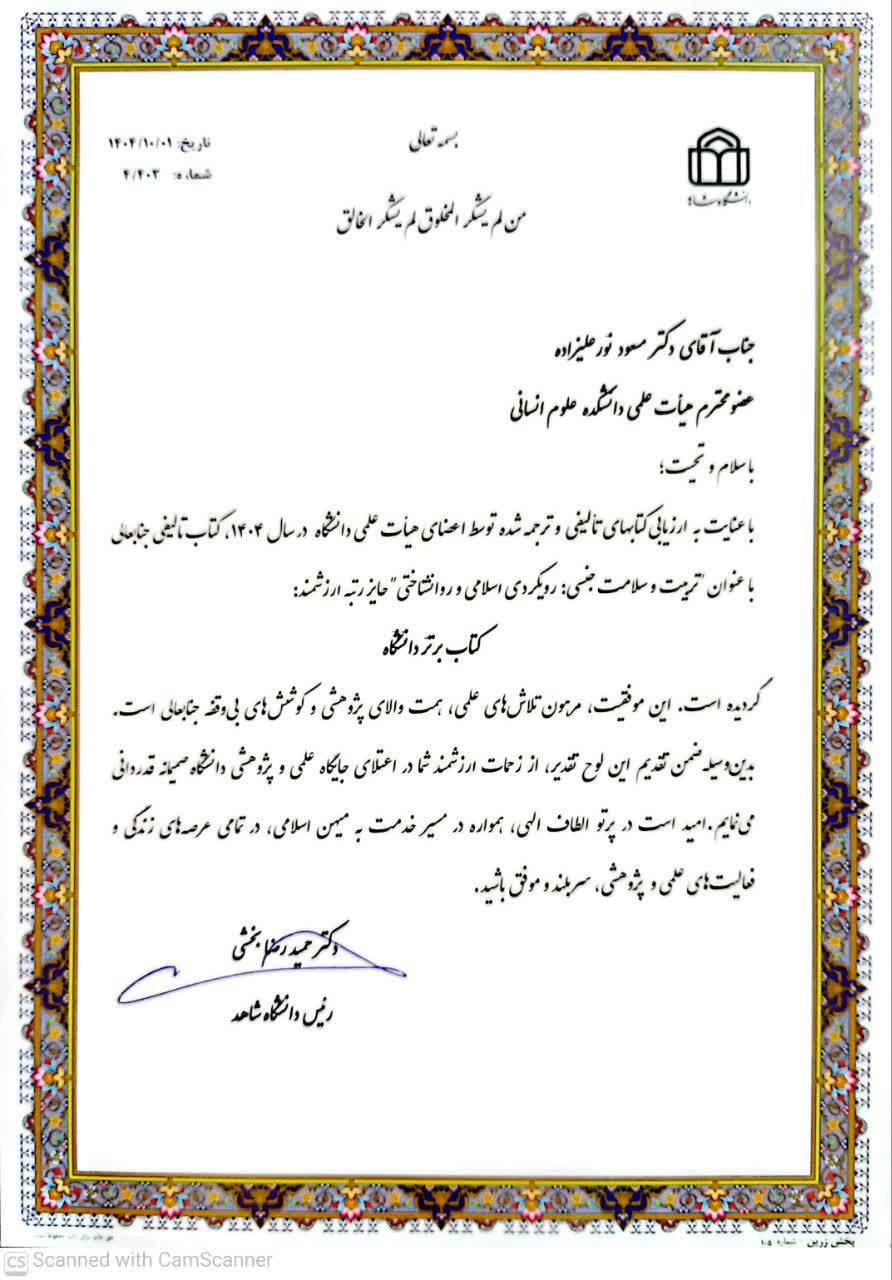 بسمه تعالی
تاریخ: ۱۴۰۴/۱۰/۰۱
شماره: ۴/۴۰۳
دانشگاه شاهد
من لم یشکر المخلوق لم یشکر الخالق
جناب آقای دکتر مسعود نورعلیزاده
عضو محترم هیأت علمی دانشکده علوم انسانی
با سلام و تحیت؛
با عنایت به ارزیابی کتابهای تألیفی و ترجمه شده توسط اعضای هیأت علمی دانشگاه در سال ۱۴۰۴، کتاب تالیفی جنابعالی
با عنوان "تربیت و سلامت جنسی: رویکردی اسلامی و روانشناختی" حایز رتبه ارزشمند:
کتاب برتر دانشگاه
گردیده است. این موفقیت، مرهون تلاش‌های علمی، همت والای پژوهشی و کوشش‌های بی‌وقفه جنابعالی است.
بدین‌وسیله ضمن تقدیم این لوح تقدیر، از زحمات ارزشمند شما در اعتلای جایگاه علمی و پژوهشی دانشگاه صمیمانه قدردانی
می‌نمایم. امید است در پرتو الطاف الهی، همواره در مسیر خدمت به میهن اسلامی، در تمامی عرصه‌های زندگی و
فعالیت‌های علمی و پژوهشی، سربلند و موفق باشید.
دکتر حمید رضا بخشی
رئیس دانشگاه شاهد
پخش زرین - شماره ۱۰۵
CS Scanned with CamScanner